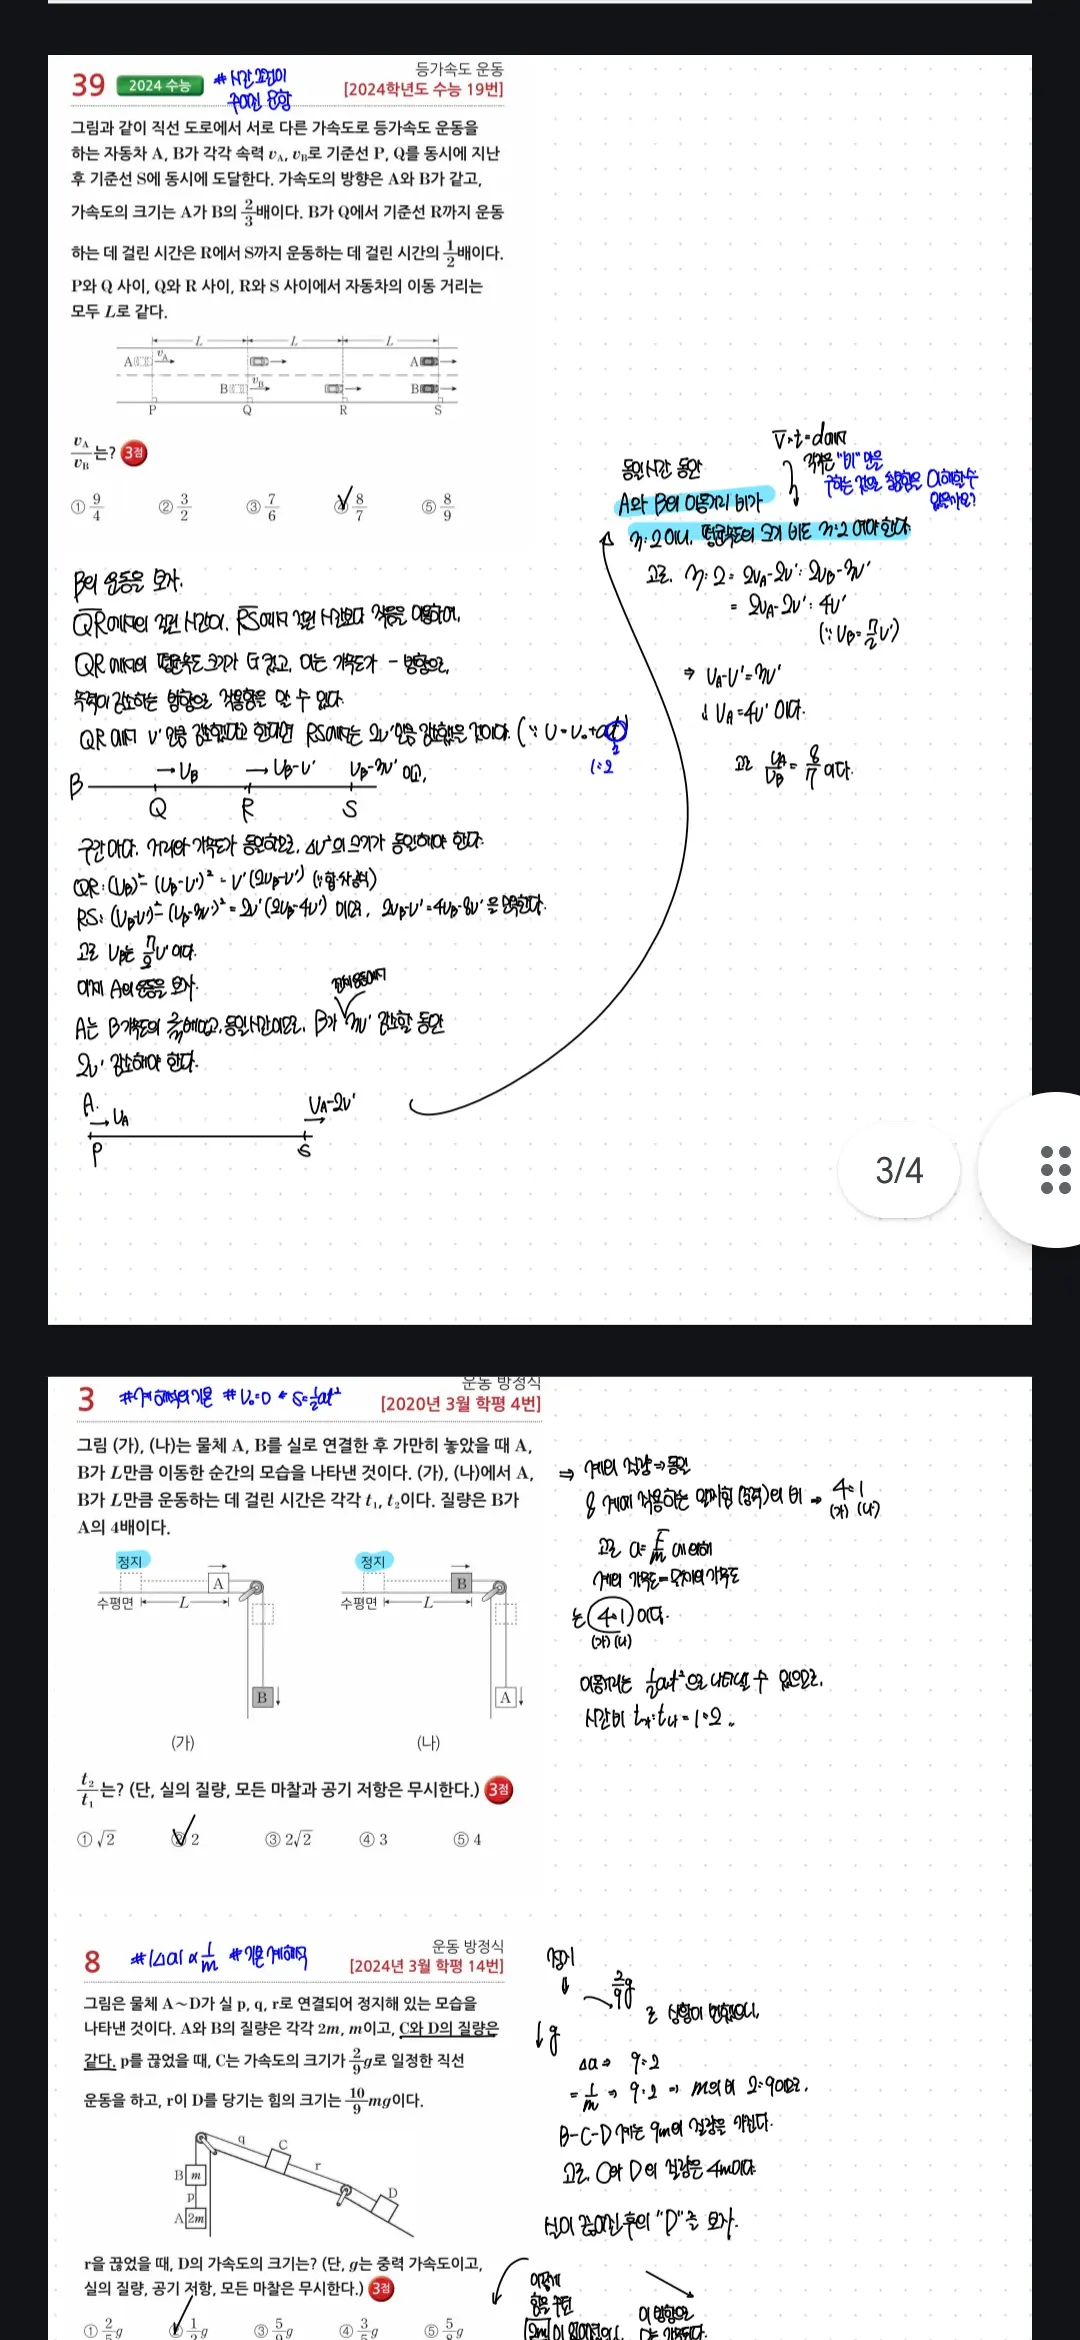 39 2024 수능 # 시간 조건이
주어진 문항
등가속도 운동
[2024학년도 수능 19번]
그림과 같이 직선 도로에서 서로 다른 가속도로 등가속도 운동을
하는 자동차 A, B가 각각 속력 v_A, v_B로 기준선 P, Q를 동시에 지난
후 기준선 S에 동시에 도달한다. 가속도의 방향은 A와 B가 같고,
가속도의 크기는 A가 B의 2/3배이다. B가 Q에서 기준선 R까지 운동
하는 데 걸린 시간은 R에서 S까지 운동하는 데 걸린 시간의 1/2배이다.
P와 Q 사이, Q와 R 사이, R와 S 사이에서 자동차의 이동 거리는
모두 L로 같다.
L L L
A v_A A
B v_B B
P Q R S
v_A/v_B는? 3점
① 9/4 ② 3/2 ③ 7/6 ④ 8/7 ⑤ 8/9
B의 운동을 보자.
QR에서의 걸린 시간이, RS에서 걸린 시간보다 작음을 이용하여,
QR에서의 평균속도 크기가 더 컸고, 이는 가속도가 - 방향으로,
속력이 감소하는 방향으로 작용함을 알 수 있다.
QR에서 v'만큼 감소했다고 한다면 RS에서는 2v'만큼 감소했을 것이다. (∵ v = v₀+at)
1:2
B → v_B → v_B-v' v_B-3v' 이고,
Q R S
구간마다, 거리와 가속도가 동일하므로, Δv²의 크기가 동일해야 한다.
QR: (v_B)² - (v_B-v')² = v'(2v_B-v') (∵ 합차공식)
RS: (v_B-v')² - (v_B-3v')² = 2v'(2v_B-4v') 이므로, 2v_B-v' = 4v_B-8v'을 만족한다.
고로 v_B는 7/2 v'이다.
이제 A의 운동을 보자.
전체 운동에서
A는 B 가속도의 2/3배이고, 동일시간이므로, B가 3v' 감소할 동안
2v' 감소해야 한다.
A. → v_A v_A-2v'
P S
v̄×t = d
동일시간 동안
각각은 "비"만을
A와 B의 이동거리 비가
구하는 것으로 충분함을 이해할 수
있을까요?
3:2이니, 평균속도의 크기 비도 3:2여야 한다.
고로, 3:2 = 2v_A-2v' : 2v_B-3v'
= 2v_A-2v' : 4v'
(∵ v_B = 7/2 v')
⇒ v_A-v' = 3v'
↓ v_A = 4v'이다.
고로 v_A/v_B = 8/7이다.
3/4
3 #계 해석의 기본 # v₀=0 → s=½at²
운동 방정식
[2020년 3월 학평 4번]
그림 (가), (나)는 물체 A, B를 실로 연결한 후 가만히 놓았을 때 A,
B가 L만큼 이동한 순간의 모습을 나타낸 것이다. (가), (나)에서 A,
B가 L만큼 운동하는 데 걸린 시간은 각각 t₁, t₂이다. 질량은 B가
A의 4배이다.
정지 A
수평면 L
B
(가)
정지 B
수평면 L
A
(나)
t₂/t₁는? (단, 실의 질량, 모든 마찰과 공기 저항은 무시한다.) 3점
① √2 ② 2 ③ 2√2 ④ 3 ⑤ 4
⇒ 계의 질량 → 동일
& 계에 작용하는 알짜힘(중력)의 비 → 4:1
(가) (나)
고로 a = F/m에 의해
계의 가속도 = 물체의 가속도
는 4:1이다.
(가) (나)
이동거리는 ½at²으로 나타낼 수 있으므로,
시간비 t가:t나 = 1:2.
8 #|Δa| ∝ 1/m #기본 계해석
운동 방정식
[2024년 3월 학평 14번]
그림은 물체 A~D가 실 p, q, r로 연결되어 정지해 있는 모습을
나타낸 것이다. A와 B의 질량은 각각 2m, m이고, C와 D의 질량은
같다. p를 끊었을 때, C는 가속도의 크기가 2/9 g로 일정한 직선
운동을 하고, r이 D를 당기는 힘의 크기는 10/9 mg이다.
q C
r
B m
p
A 2m
D
r을 끊었을 때, D의 가속도의 크기는? (단, g는 중력 가속도이고,
실의 질량, 공기 저항, 모든 마찰은 무시한다.) 3점
① 2/5 g ② 1/2 g ③ 5/9 g ④ 3/5 g ⑤ 5/8 g
정지
↓ 2/9 g
로 상황이 변했으니,
↓g
Δa ⇒ 9:2
= 1/m ⇒ 9:2 ⇒ m의 비 2:9이므로,
B-C-D 계는 9m의 질량을 가진다.
고로, C와 D의 질량은 4m이다.
실이 끊어진 후의 "D"를 보자.
이렇게
힘을 주던
2m이 없어졌으니,
이 방향으로
D는 가속된다.